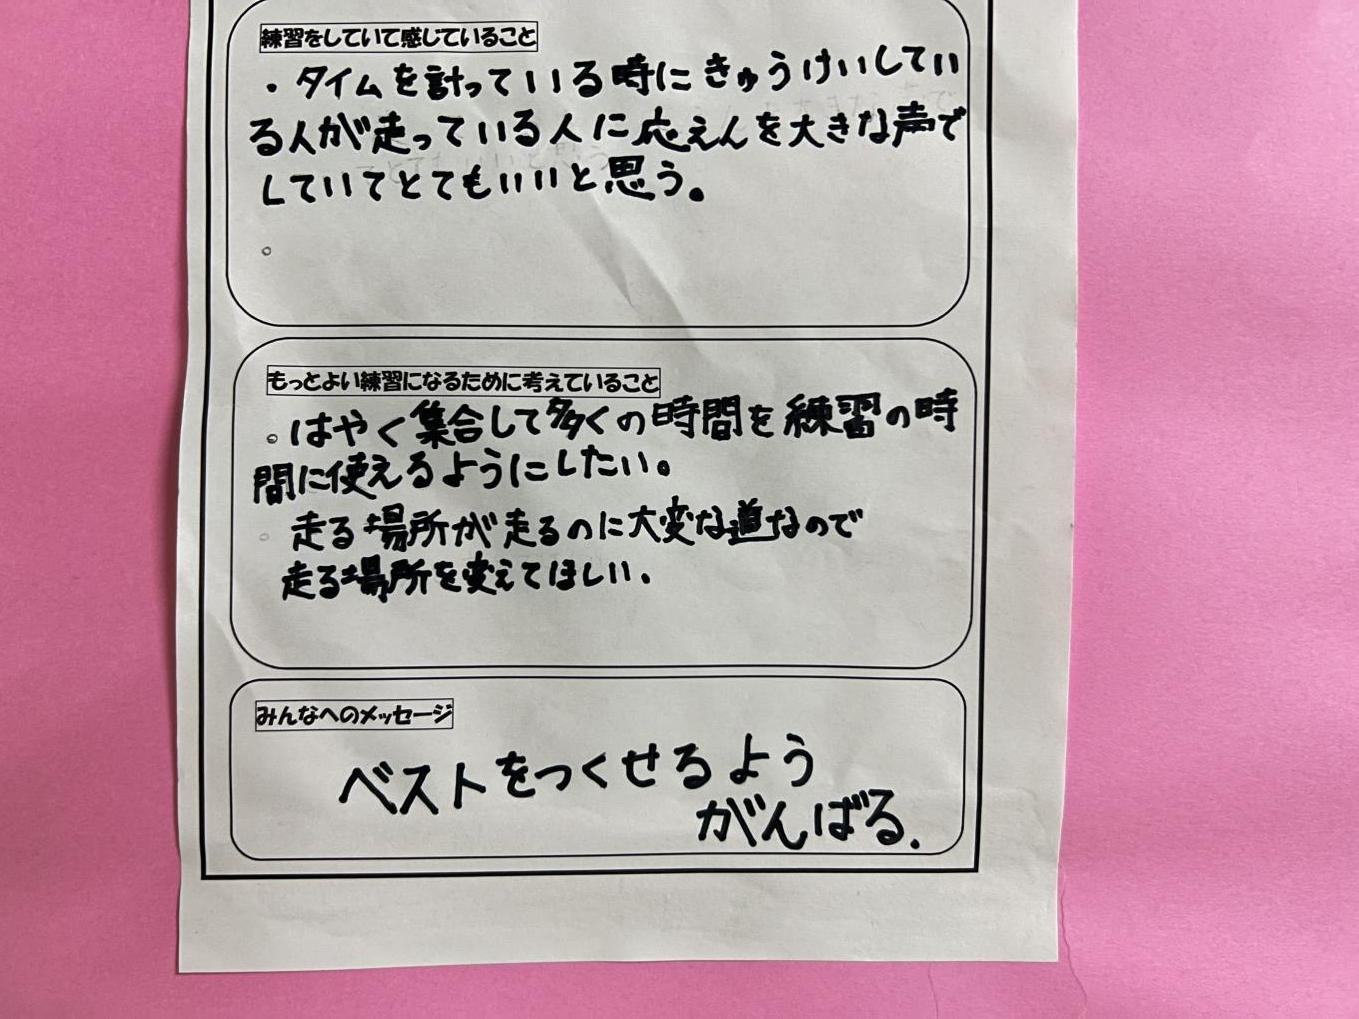 練習をしていて感じていること
・タイムを計っている時にきゅうけいしてい
る人が走っている人に応えんを大きな声で
していてとてもいいと思う。
。
もっとよい練習になるために考えていること
。はやく集合して多くの時間を練習の時
間に使えるようにしたい。
。走る場所が走るのに大変な道なので
走る場所を変えてほしい.
みんなへのメッセージ
ベストをつくせるよう
がんばる.